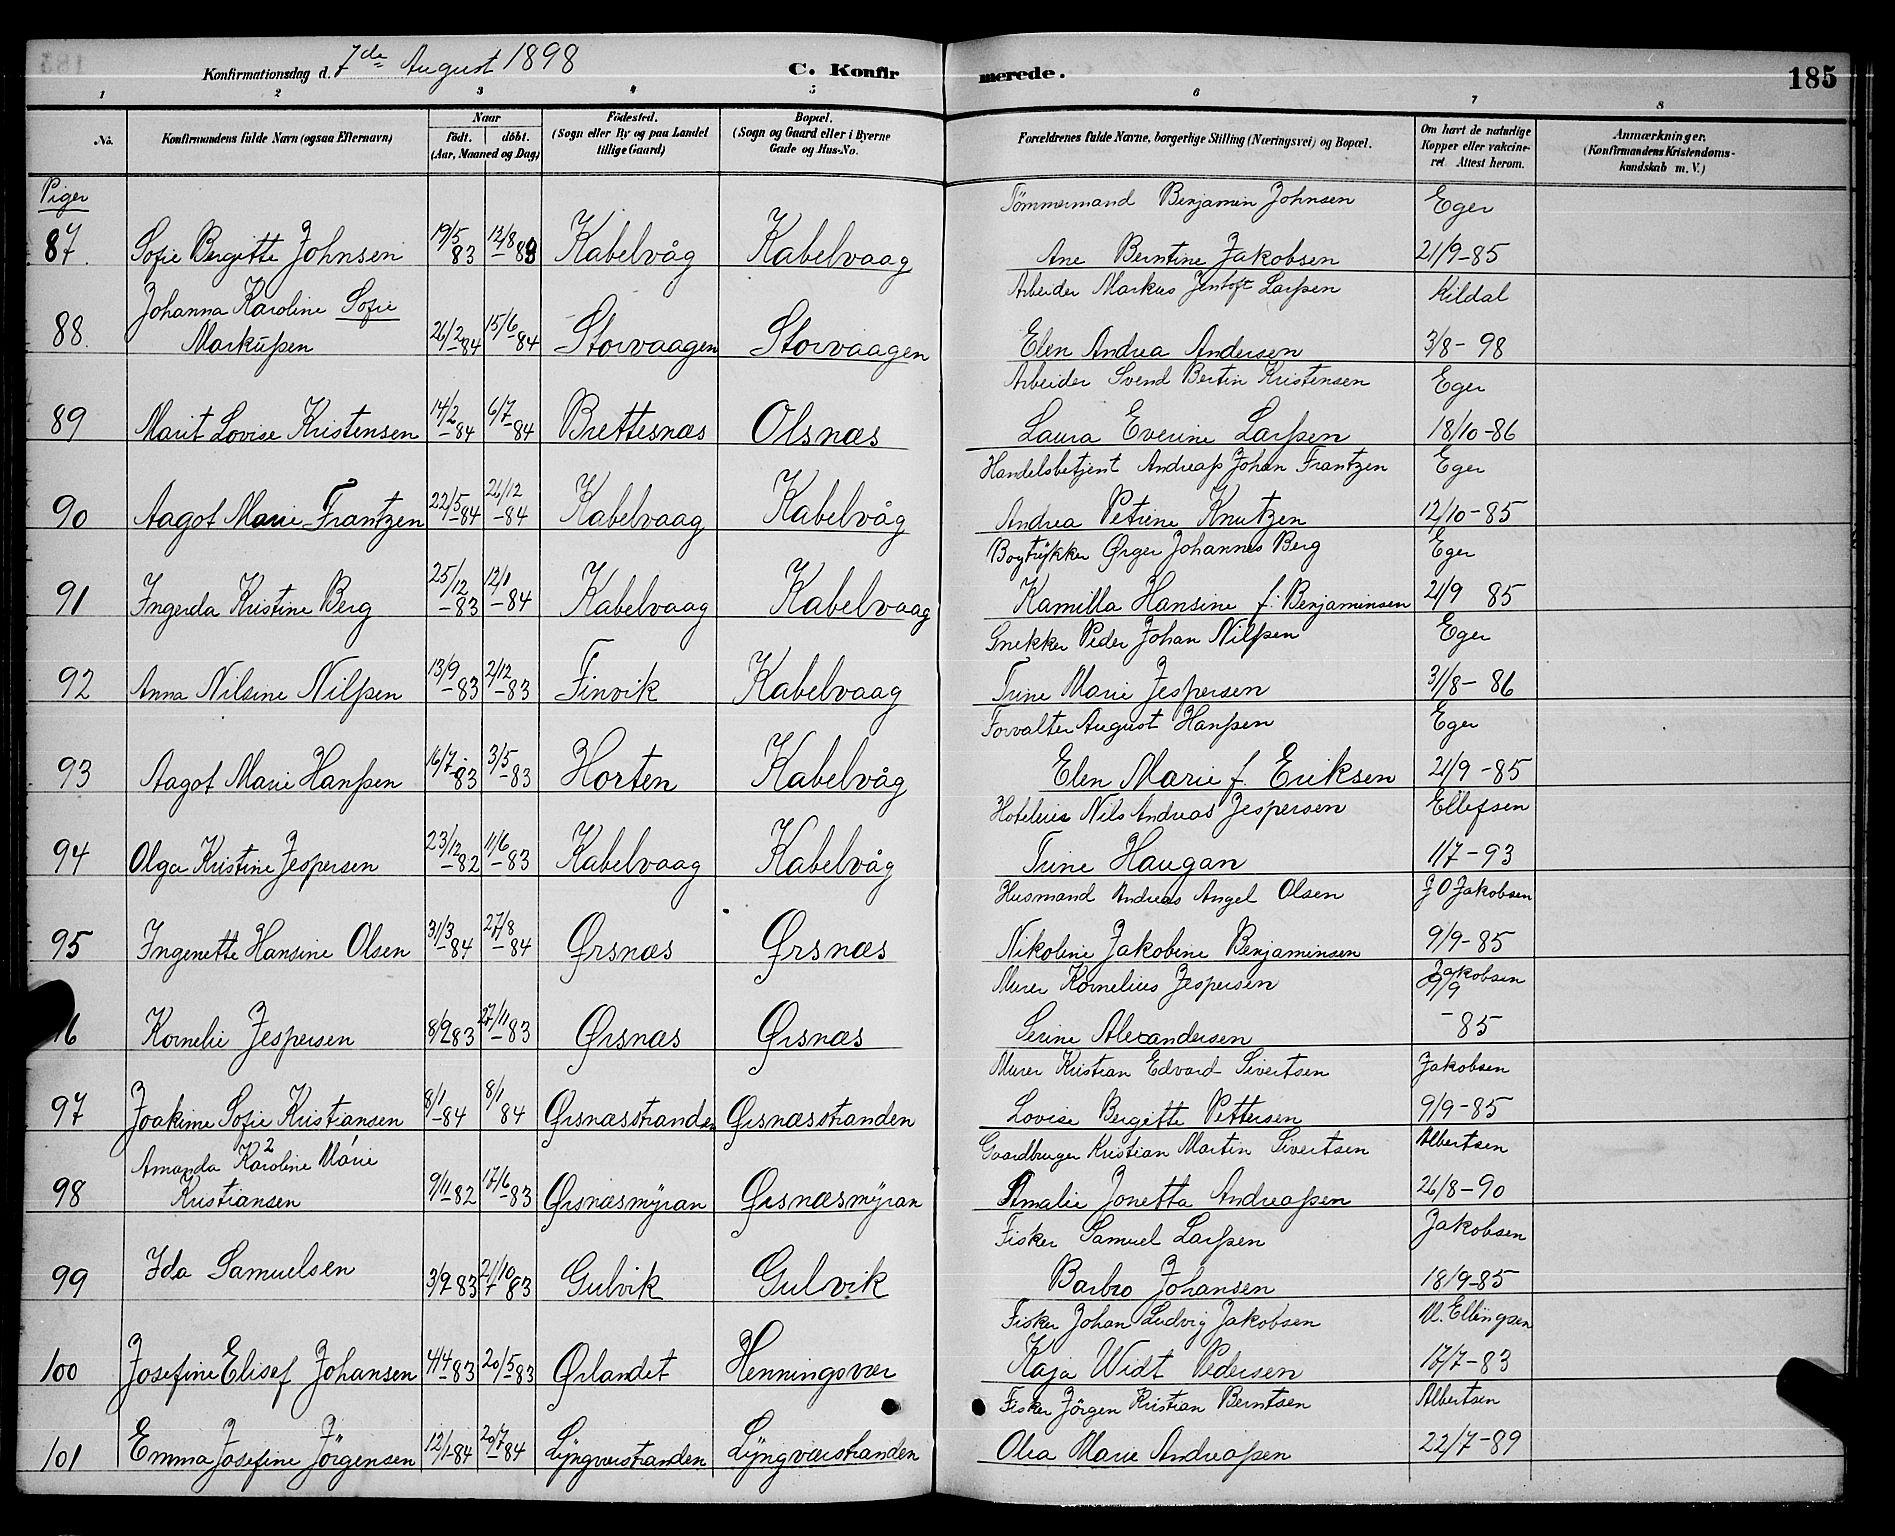 Konfirmationsdag d. 7de August 1898 C. Konfirmerede. 185
1 2 3 4 5 6 7 8
No. Konfirmandens fulde Navn (ogsaa Efternavn) Naar født. døbt. (Aar, Maaned og Dag) Födested. (Sogn eller By og paa Landet tillige Gaard) Bopæl. (Sogn og Gaard eller i Byerne Gade og Hus-No. Forældrenes fulde Navne, borgerlige Stilling (Næringsvei) og Bopæl. Om havt de naturlige Kopper eller vakcineret Attest herom. Anmærkninger. (Konfirmandens Kristendomskundskab m. V.)
Piger
Tömmermand Benjamin Johnsen Eger
87. Sofie Bergitte Johnsen 19/5 83 12/8 - 83 Kabelvåg Kabelvaag Ane Berntine Jakobsen 21/9-85
Johanna Karoline Sofie Arbeider Markus Jentoft Larsen Kildal
88. Markussen 26/2-84 15/6-84 Storvaagen Storvaagen Elen Andrea Andersen 3/8-98
Arbeider Svend Bertin Kristensen Eger
89 Marit Lovise Kristensen 14/2-84 6/7-84 Brettesnæs Olsnæs Laura Everine Larssen 18/10-86
Handelsbetjent Andreas Johan Frantzen Eger
90 Aagot Marie Frantzen 22/5-84 26/12-84 Kabelvaag Kabelvåg Andrea Petrine Knutzen 12/10-85
Bogtrykker Ørger Johannes Berg Eger
91 Ingerda Kristine Berg 25/12-83 12/1-84 Kabelvaag Kabelvaag Kamilla Hansine f. Benjaminsen 21/9 85
Snekker Peder Johan Nilssen Eger
92 Anna Nilsine Nilssen 13/9-83 2/12-83 Finvik Kabelvaag Trine Marie Jespersen 31/8-86
Forvalter August Hanssen Eger
93 Aagot Marie Hanssen 16/7-83 3/5-83 Horten Kabelvåg Elen Marie f. Eriksen 21/9-85
Nils Andreas Jespersen Ellefsen
94 Olga Kristine Jespersen 23/12-82 11/6-83 Kabelvaag Kabelvåg Trine Haugan 1/7-93
Husmand Andreas Angel Olsen J O Jakobsen
95 Ingenette Hansine Olsen 31/3-84 27/8-84 Ørsnæs Ørsnæs Nikoline Jakobine Benjaminsen 9/9-85
Murer Kornelius Jespersen Jakobsen 9/9
96 Kornelie Jespersen 8/9 83 27/11-83 Ørsnæs Ørsnæs Serine Alexandersen -85
Murer Kristian Edvard Sivertsen Jakobsen
97 Joakime Sofie Kristiansen 8/1-84 8/1 84 Ørsnæsstranden Ørsnæsstranden Lovise Bergitte Pettersen 9/9-85
Amanda Karoline Marie Gaardbruger Kristian Martin Sivertsen Albertsen
98 Kristiansen 9/11-82 17/6-83 Ørsnæsmyran Ørsnæsmyran Amalie Jonetta Andreassen 26/8-90
Fisker Samuel Larssen Jakobsen
99 Ida Samuelsen 3/9-83 21/10 83 Gulvik Gulvik Barbro Johansen 18/9-85
Fisker Johan Ludvig Jakobsen M. Ellingsen
100 Josefine Elisef Johansen 4/4-83 20/5-83 Ørlandet Henningsvær Kaja Widt Pedersen 17/7-83
Fisker Jörgen Kristian Berntsen Albertsen
101 Emma Josefine Jörgensen 12/1-84 20/7-84 Lyngværstranden Lyngværstranden Olea Marie Andreassen 22/7-89